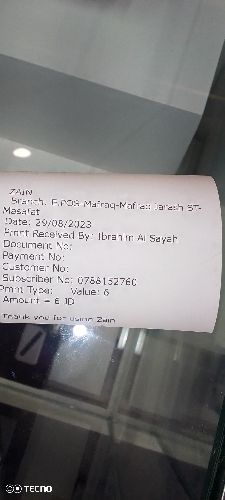 ZAIN
Branch: E.POS-Mafraq-Mafraq Jarash ST-
Masafat
Date: 29/08/2023
Pmnt Received By: Ibrahim Al Sayah
Document No:
Payment No:
Customer No:
Subscriber No: 0788152760
Pmnt Type: Value: 6
Amount = 6 JD
Thank you for using Zain
TECNO